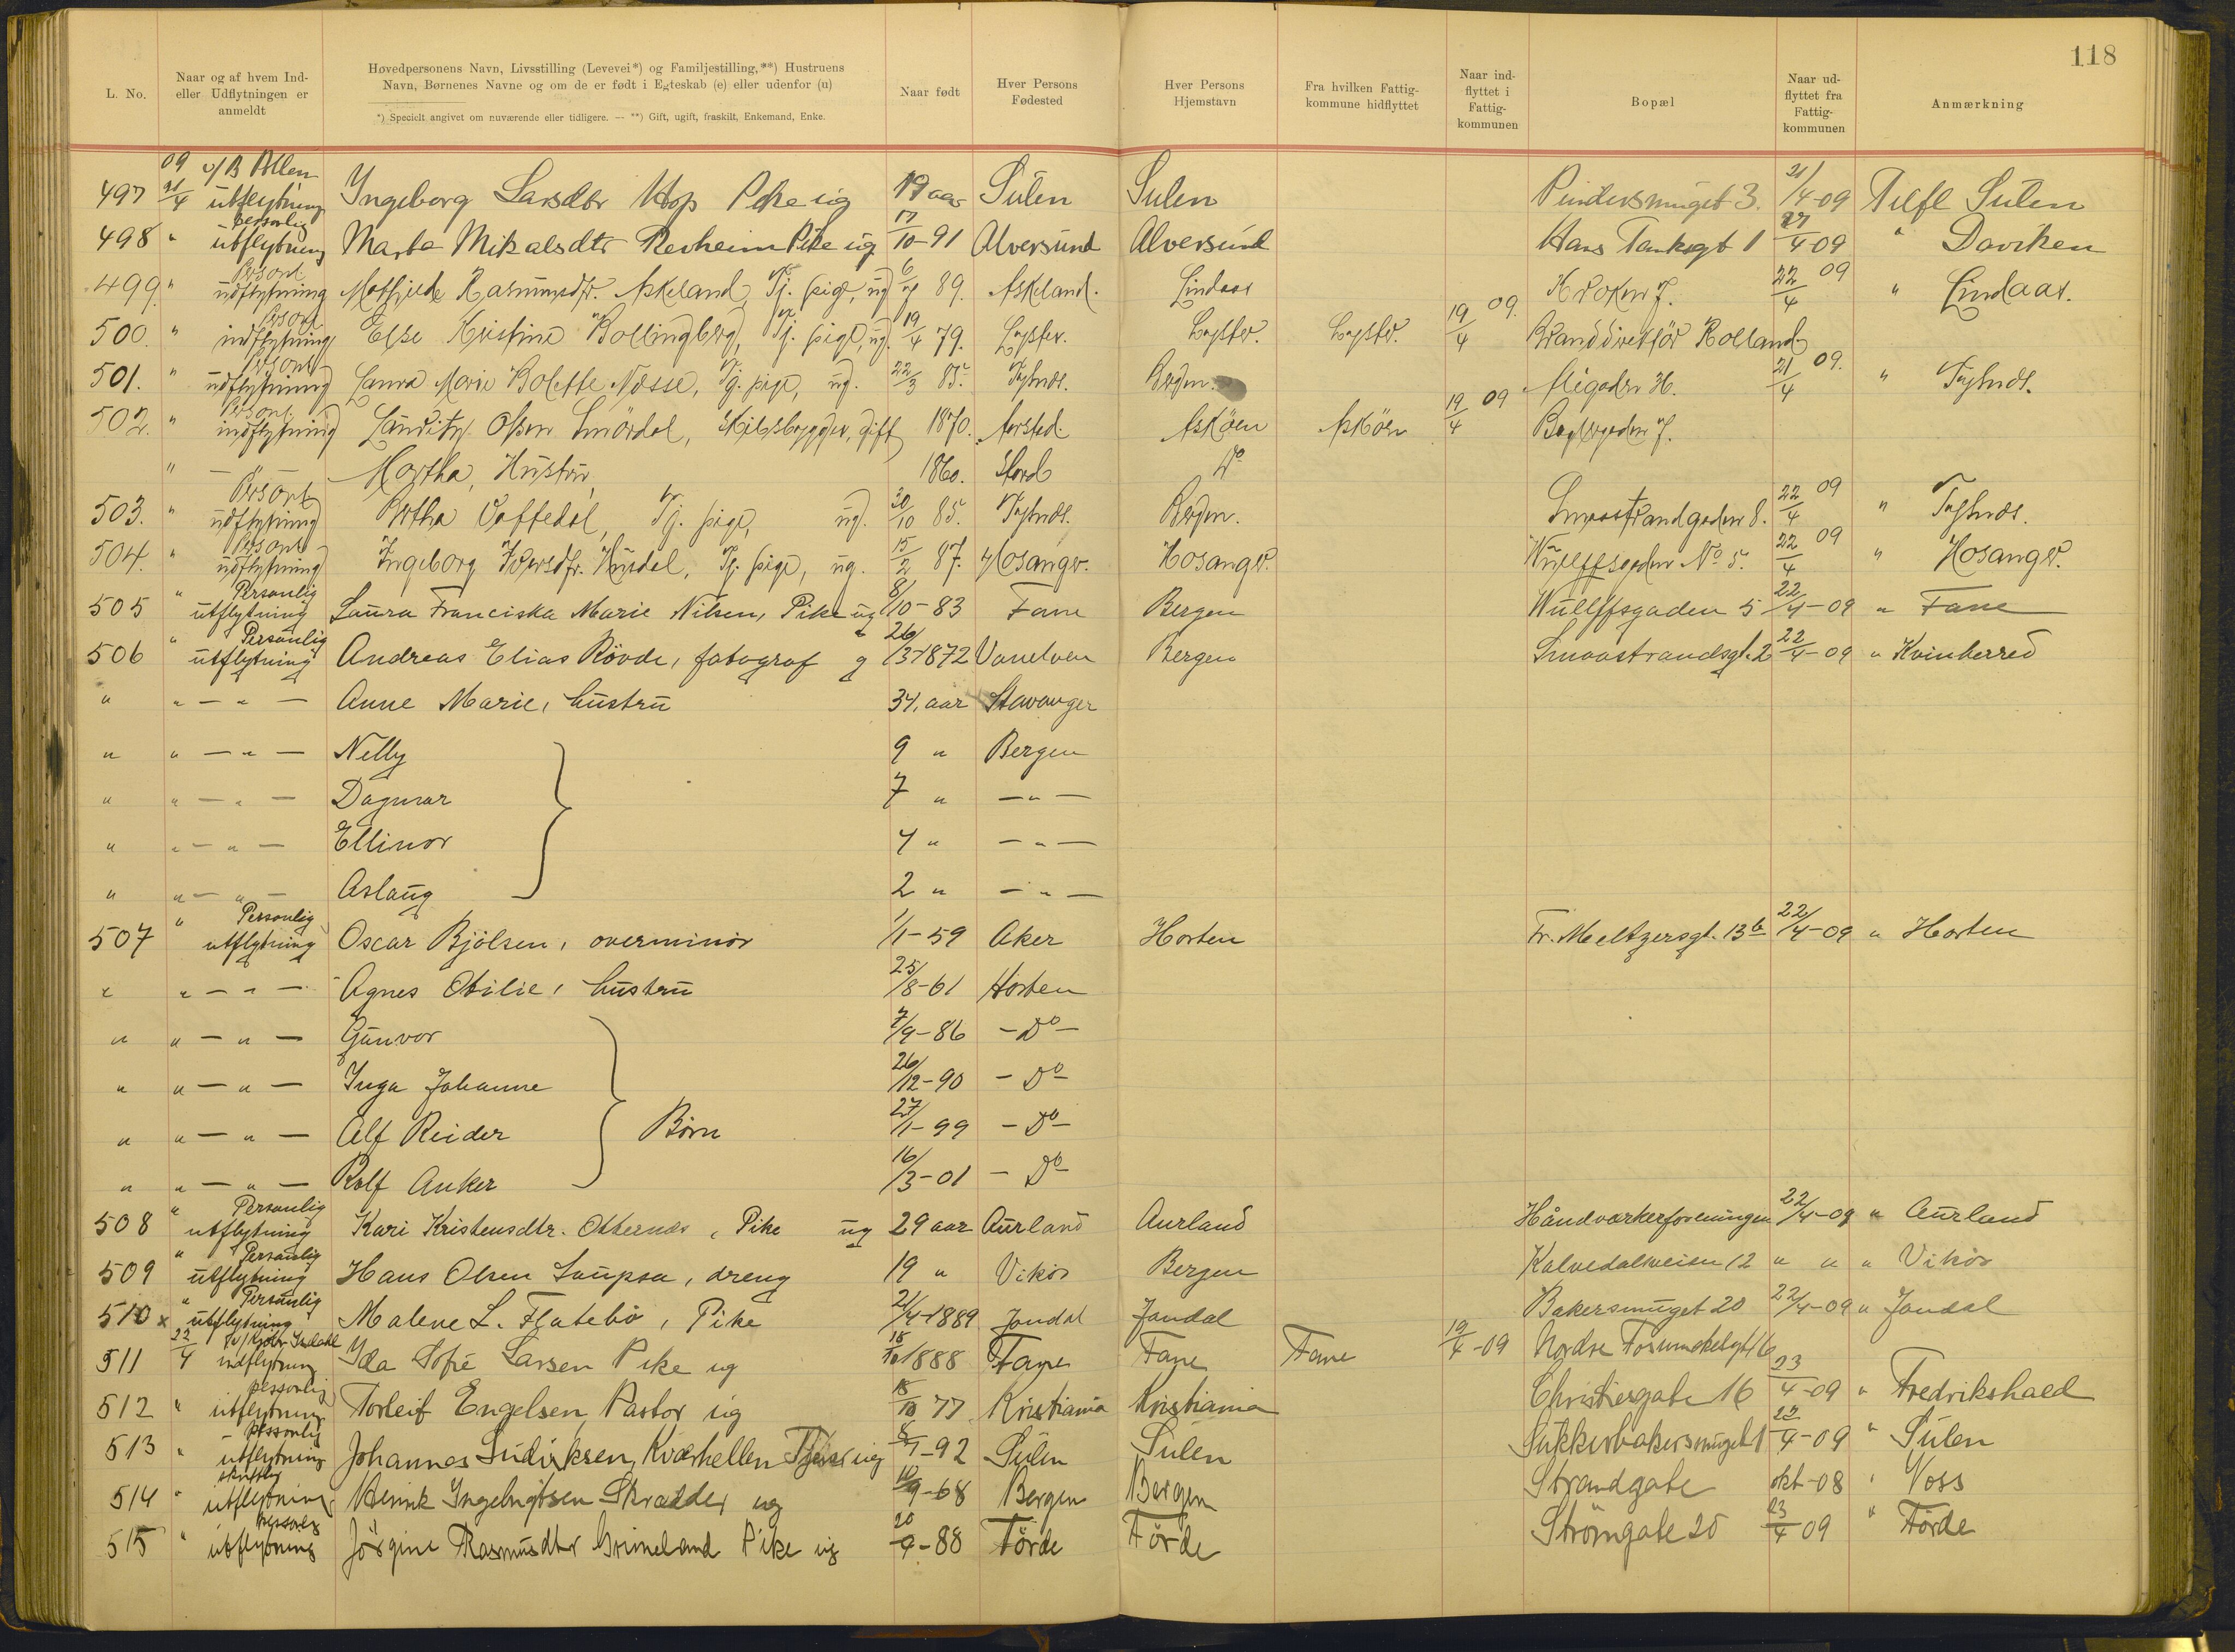 118
L. No.
Naar og af hvem Ind- eller Udflytningen er anmeldt
Høvedpersonens Navn, Livsstilling (Levevei*) og Familjestilling,**) Hustruens Navn, Børnenes Navne og om de er født i Egteskab (e) eller udenfor (u)
*) Specielt angivet om nuværende eller tidligere. — **) Gift, ugift, fraskilt, Enkemand, Enke.
Naar født
Hver Persons Fødested
Hver Persons Hjemstavn
Fra hvilken Fattigkommune hidflyttet
Naar indflyttet i Fattigkommunen
Bopæl
Naar udflyttet fra Fattigkommunen
Anmærkning
497 09 21/4 v/B utflytning Ingeborg Larsdtr Hop Pike ug 19 aar Sulen Sulen Pindersmuget 3. 21/4-09 Tilfl Sulen
498 " personlig utflytning Marta Mikalsdtr Revheim Pike ug 17/10-91 Alversund Alversund Hans Tanksgt 1 27/4 09 " Daviken
499. " Personl. udflytning Mathilde Rasmusdtr. Askeland, Tj. pige, ug 89. Askeland. Lindaas 22/4 09 " Lindaas.
500. " Personl indflytning Else Kristine Bollingberg, Tj. pige, ug. 19/4 79. Lyster. Lyster. Lyster. 19/4 09. Branddirektør Rolland
501. " Personl udflytning Laura Marie Bolette Næsse, Tj. pige, ug. 22/3 85. Tysnæs. Bergen. 21/4 09. " Tysnæs.
502. " Personl. indflytning Olsen Smördal, Skibsbygger, gift 1870. Aarstad. Askøen Askøen 19/4 09
" — — Martha, Hustru, 1860. Stord Do
503. " Personl udflytning Bertha Toftedal, Tj. pige, ug. 30/10 85. Tysnæs. Bergen. Smaastrandgaden 8. 22/4 09 " Tysnæs.
504. " Personl udflytning Ingeborg Iversdtr. Husdal, Tj. pige, ug. 15/2 87. Hosanger. Hosanger. Wullffsgaden No 5. 22/4 09 " Hosanger.
505 " Personlig utflytning Laura Franciska Marie Nilsen, Pike ug 8/10-83 Fane Bergen Wullffsgaden 5 22/4-09 " Fane
506 " Personlig utflytning Andreas Elias Rövde, fotograf g 26/3-1872 Vanelven Bergen Smaastrandsgt. 2 22/4-09 " Kvinherred
" " — " — Anne Marie, hustru 34. aar Stavanger
" " — " — Nelly 9 " Bergen
" " — " — Dagmar 7 " — " —
" " — " — Ellinor 4 " — " —
" " — " — Aslaug 2 " — " —
507 " Personlig utflytning Oscar Bjölsen, overminör 1/1-59 Aker Horten Fr. Meltzersgt. 13b 22/4-09 " Horten
" " — " — Agnes Otilie, hustru 25/8-61 Horten
" " — " — Gunvor 7/9-86 — Do —
" " — " — Inga Johanne 26/12-90 — Do —
" " — " — Alf Reider Börn 27/1-99 — Do —
" " — " — Rolf Anker 16/3-01 — Do
508 " Personlig utflytning Kari Kristensdtr. Otternæs, Pike ug 29 aar Aurland Aurland Håndværkerforeningen 22/4-09 " Aurland
509 " Personlig utflytning Hans Olsen Laupsa, dreng 19 " Vikör Bergen Kalvedalsveien 12 " " " Vikör
510 x " Personlig utflytning Malene L. Flatebö, Pike 21/4-1889 Jondal Jondal Bakersmuget 20 22/4-09 " Jondal
511 22/4 indflytning Ida Sofie Larsen Pike ug 18/10 1888 Fane Fane Fane 19/4-09
512 " personlig utflytning Torleif Engelsen Pastor ug 18/10 77 Kristiania Kristiania Christiesgate 16 23/4-09 " Fredrikshald
513 " personlig utflytning Johannes Kværhellen ug 8/1-92 Sulen Sulen Sukkerbakersmuget 1 22/4-09 " Sulen
514 " skriftlig utflytning Henrik Ingebrigtsen Skrædder ug 9-68 Bergen Bergen Strandgate okt-08 " Voss
515 " personlig utflytning Jörgine Rasmusdtr Grimeland Pike ug 20/9-88 Förde Förde Strömgate 25 23/4 09 " Förde